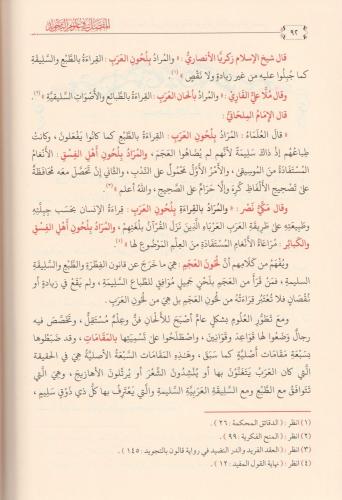 ٩٢
المفصل في علوم التجويد
قال شيخ الإسلام زكريا الأنصاري: «والمراد بلحون العرب: القراءة بالطبع والسليقة
كما جبلوا عليه من غير زيادة ولا نقص»(١).
وقال ملا علي القاري: «والمراد بألحان العرب: القراءة بالطبائع والأصوات السليقية»(٢).
قال الإمام الملحاني:
«قال العلماء: المراد بلحون العرب: القراءة بالطبع كما كانوا يفعلون، وكانت
طباعهم إذ ذاك سليمة لأنهم لم يضاهوا العجم، والمراد بلحون أهل الفسق: الأنغام
المستفادة من الموسيقى، والأمر الأول محمول على الندب، والثاني إن تحصل معه محافظة
على تصحيح الألفاظ كره وإلا حرام على الصحيح، والله أعلم»(٣).
وقال مكي نصر: «والمراد بالقراءة بلحون العرب: قراءة الإنسان بحسب جبلته
وطبيعته على طريقة العرب العرباء الذين نزل القرآن بلغتهم، والمراد بلحون أهل الفسق
والكبائر: مراعاة الأنغام المستفادة من العلم الموضوع لها»(٤).
ويفهم من كلامهم أن لحون العجم: هي ما خرج عن قانون الفطرة والطبع والسليقة
السليمة، فمن قرأ من العجم بلحن جميل موافق للطباع السليمة، ولم يقع في زيادة أو
نقصان فلا تعتبر قراءته من لحون العجم بل هي من لحون العرب.
ومع تطور العلوم بشكل عام أصبح للألحان فن وعلم مستقل، وتخصص فيه
رجال وضعوا لها قواعد وقوانين، واصطلحوا على تسميتها بالمقامات، وقد ضبطوها
بسبعة مقامات أصلية كما سبق، وهذه المقامات السبعة الأصلية هي في الحقيقة
التي كان العرب يتغنون بها أو ينشدون الشعر أو يرتلون الأهازيج، وهي التي
تتوافق مع الطبع ومع السليقة العربية السليمة والتي يعترف بها كل ذي ذوق سليم،
(١) انظر: (الدقائق المحكمة: ٢٦).
(٢) انظر: (المنح الفكرية: ٩٩).
(٣) انظر: (العقد الفريد والدر النضيد في رواية قالون بالتجويد: ١٤٥).
(٤) انظر: (نهاية القول المفيد: ١٢).